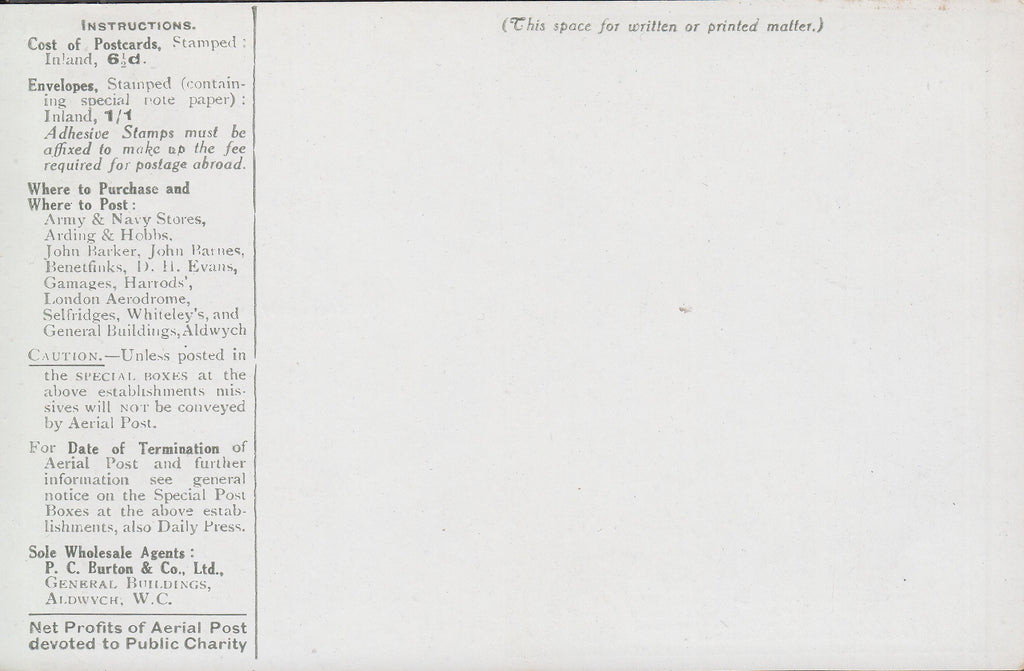 INSTRUCTIONS.
Cost of Postcards, Stamped :
Inland, 6½d.
Envelopes, Stamped (contain-
ing special note paper) :
Inland, 1/1
Adhesive Stamps must be
affixed to make up the fee
required for postage abroad.
Where to Purchase and
Where to Post :
Army & Navy Stores,
Arding & Hobbs,
John Barker, John Barnes,
Benetfinks, D. H. Evans,
Gamages, Harrods',
London Aerodrome,
Selfridges, Whiteley's, and
General Buildings, Aldwych
CAUTION.—Unless posted in
the SPECIAL BOXES at the
above establishments mis-
sives will NOT be conveyed
by Aerial Post.
For Date of Termination of
Aerial Post and further
information see general
notice on the Special Post
Boxes at the above estab-
lishments, also Daily Press.
Sole Wholesale Agents :
P. C. Burton & Co., Ltd.,
GENERAL BUILDINGS,
ALDWYCH, W.C.
Net Profits of Aerial Post
devoted to Public Charity
(This space for written or printed matter.)